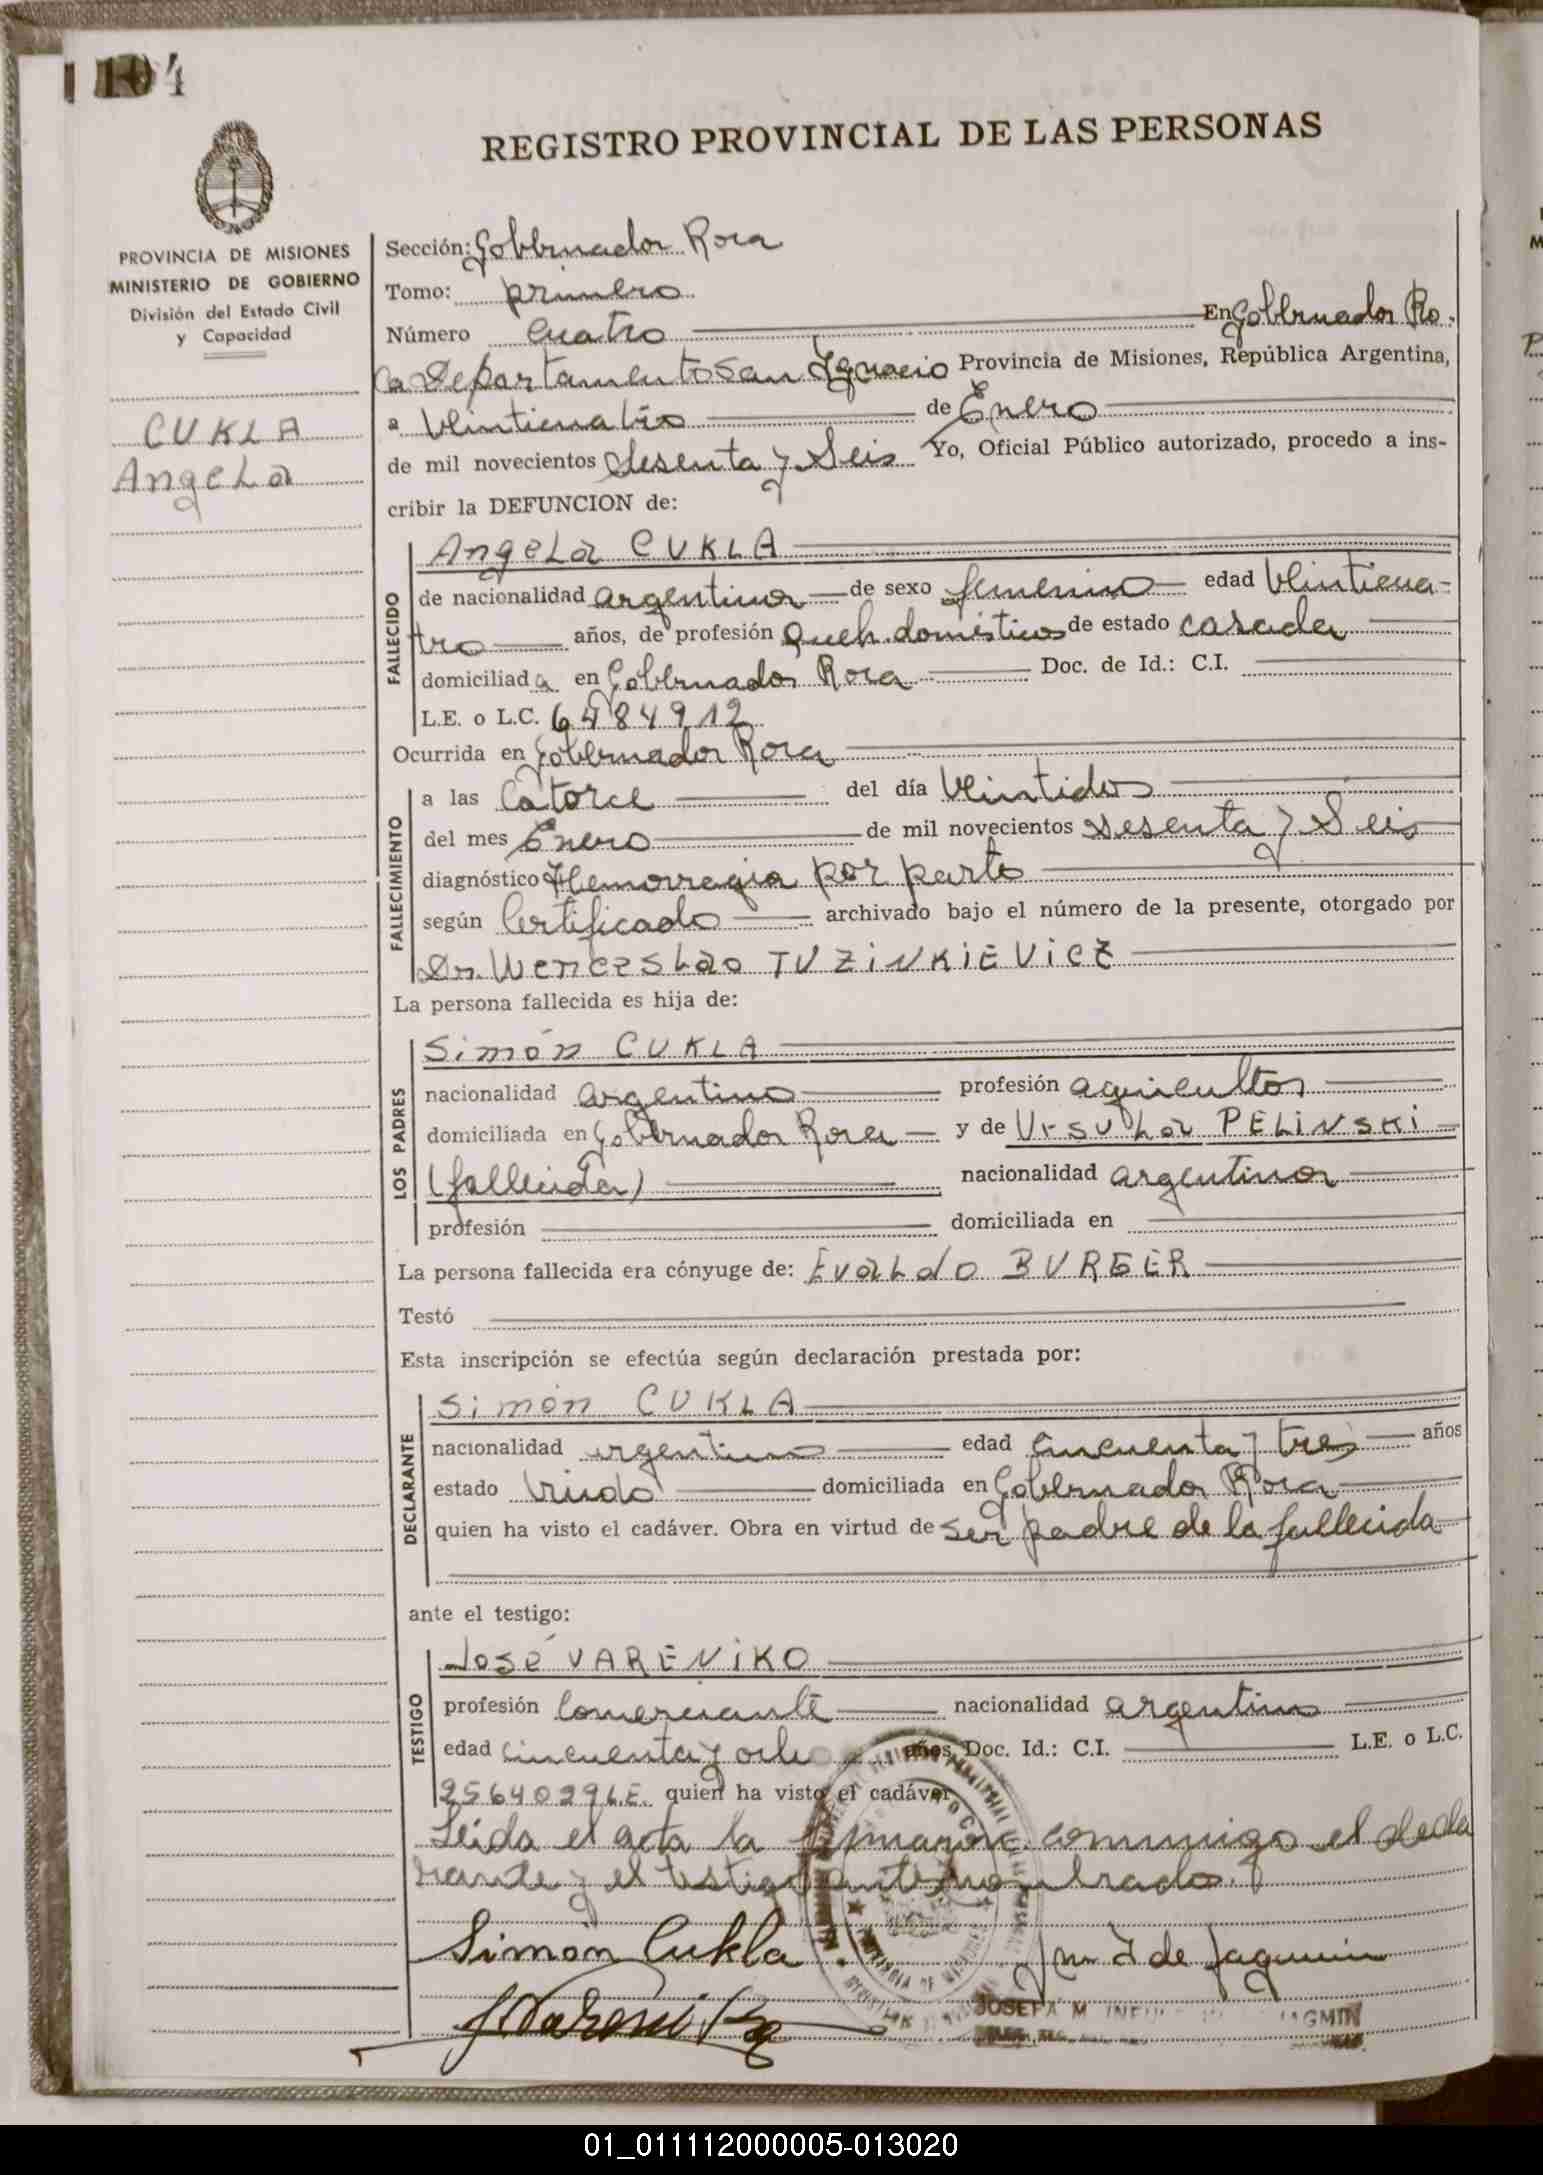 104
REGISTRO PROVINCIAL DE LAS PERSONAS
PROVINCIA DE MISIONES
MINISTERIO DE GOBIERNO
División del Estado Civil
y Capacidad
CUKLA
Angela
Sección: Gobernador Roca
Tomo: primero
Número cuatro En Gobernador Ro-
ca Departamento San Ignacio Provincia de Misiones, República Argentina,
a veinticuatro de Enero
de mil novecientos sesenta y Seis Yo, Oficial Público autorizado, procedo a ins-
cribir la DEFUNCION de:
FALLECIDO
Angela CUKLA
de nacionalidad argentina de sexo femenino edad veinticua-
tro años, de profesión queh. domésticos de estado casada
domiciliada en Gobernador Roca Doc. de Id.: C.I.
L.E. o L.C. 6484912
Ocurrida en Gobernador Roca
FALLECIMIENTO
a las catorce del día veintidos
del mes Enero de mil novecientos sesenta y Seis
diagnóstico Hemorragia por parto
según Certificado archivado bajo el número de la presente, otorgado por
Dr. Wenceslao TUZINKIEVICZ
La persona fallecida es hija de:
LOS PADRES
Simón CUKLA
nacionalidad argentino profesión agricultor
domiciliada en Gobernador Roca y de Ursula PELINSKI
(fallecida) nacionalidad argentina
profesión domiciliada en
La persona fallecida era cónyuge de: Evaldo BURGER
Testó
Esta inscripción se efectúa según declaración prestada por:
DECLARANTE
Simón CUKLA
nacionalidad argentino edad cincuenta y tres años
estado viudo domiciliada en Gobernador Roca
quien ha visto el cadáver. Obra en virtud de ser padre de la fallecida
ante el testigo:
TESTIGO
José VARENIKO
profesión comerciante nacionalidad argentino
edad cincuenta y ocho años Doc. Id.: C.I. L.E. o L.C.
2564029 L.E. quien ha visto el cadáver
Leida el acta la firman conmigo el decla
rante y el testigo antes nombrado.
Simon Cukla
PROVINCIA DE MISIONES
JOSEFA M.
01_011112000005-013020